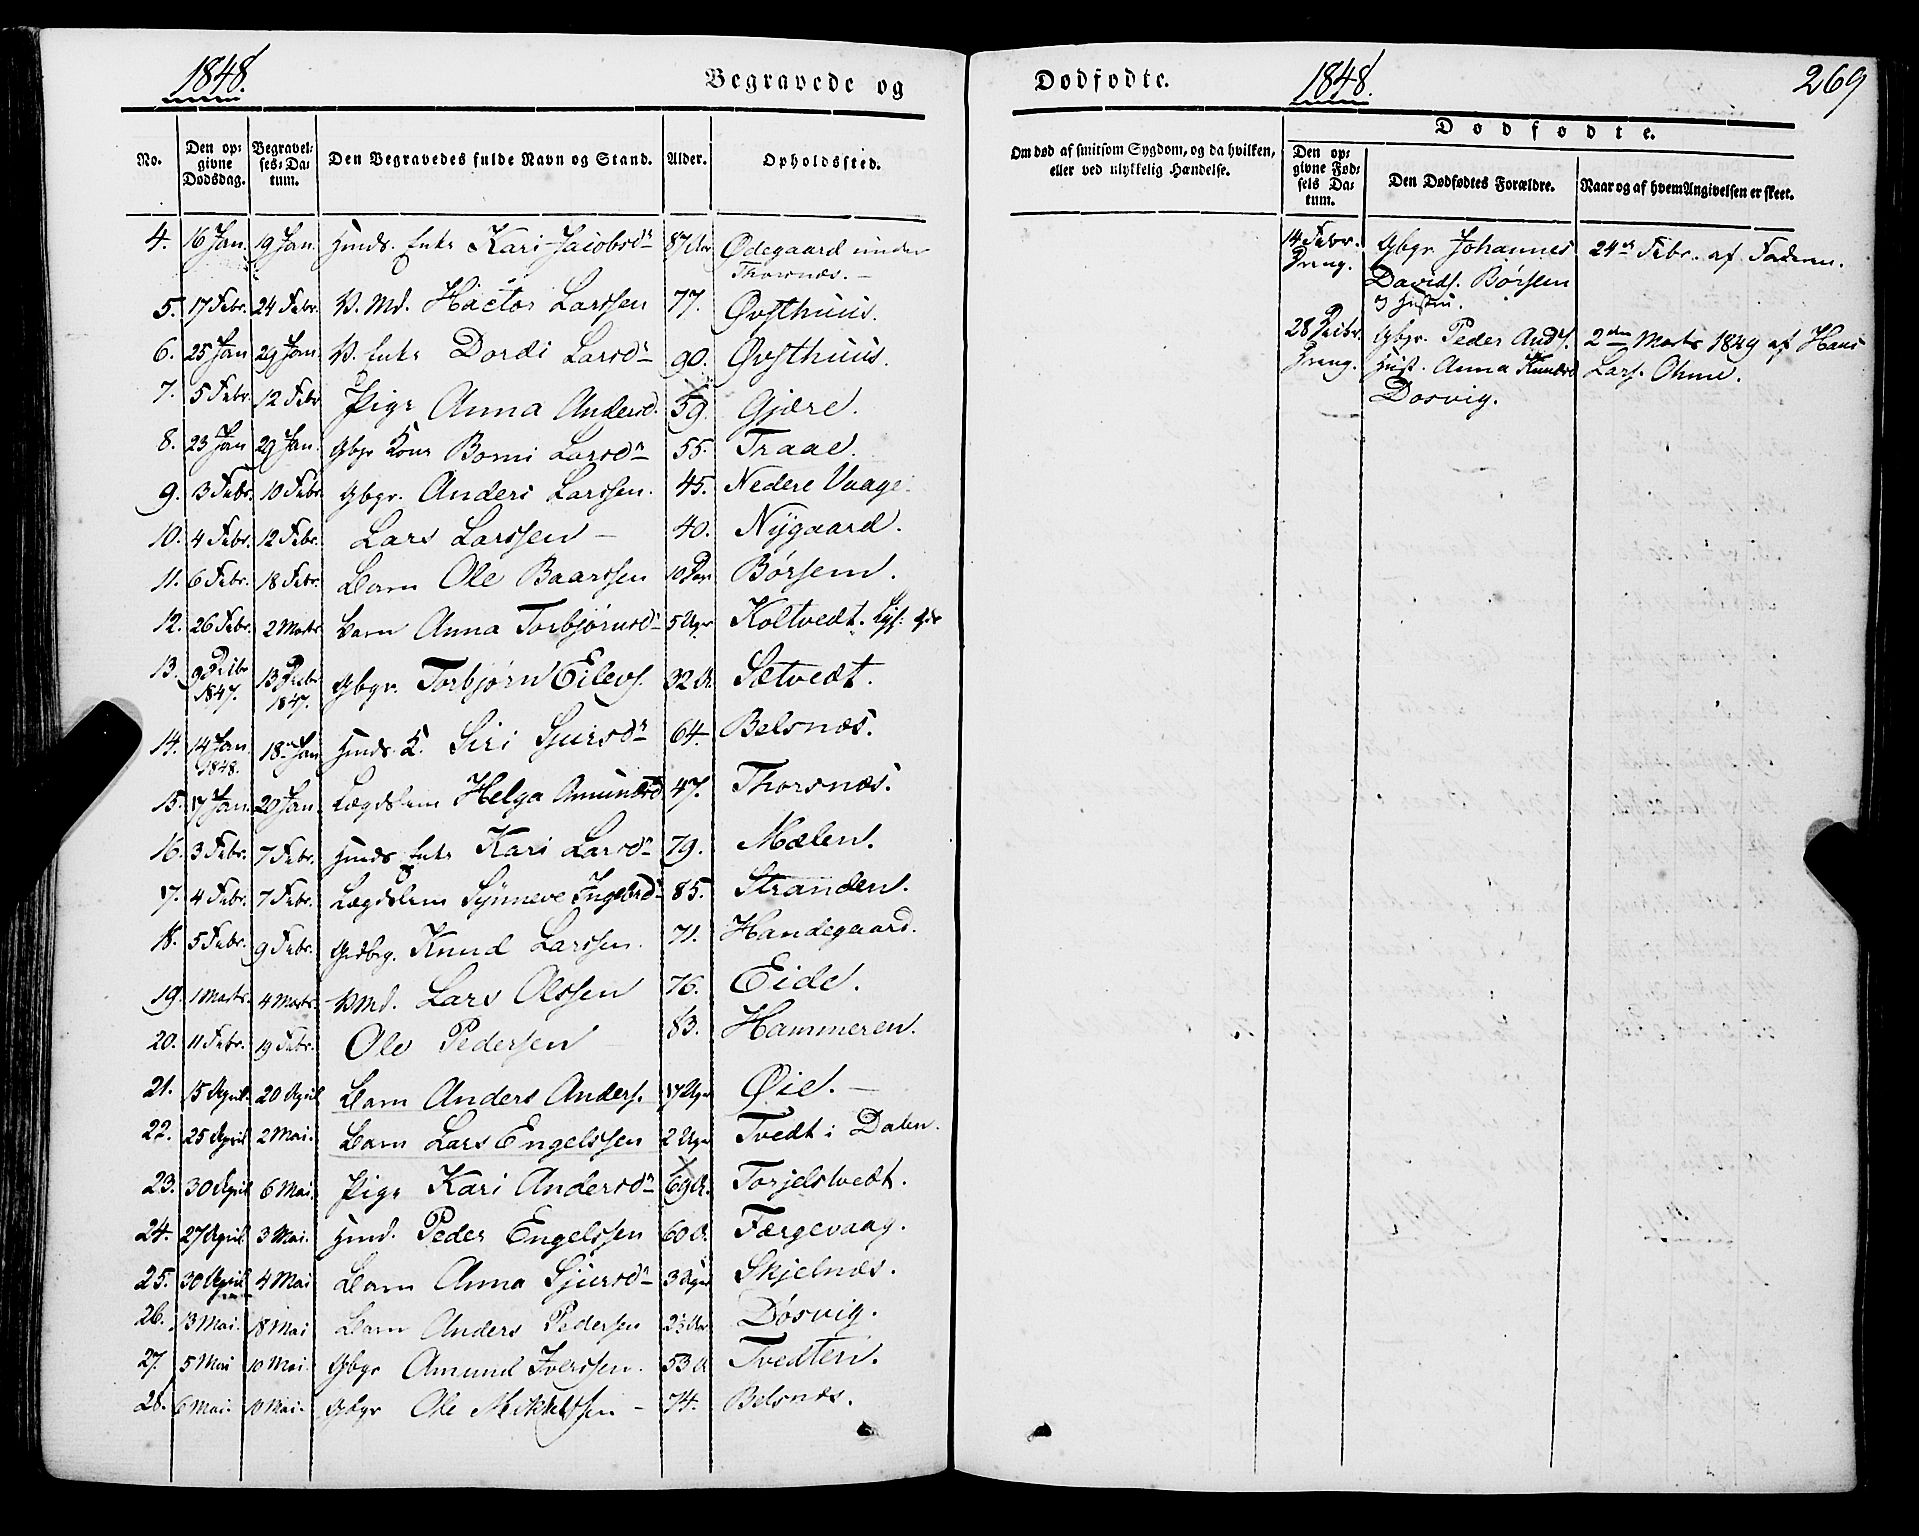 1848.
Begravede og
No. Den op- givne Dödsdag. Begravel- ses-Da- tum. Den Begravedes fulde Navn og Stand. Alder. Opholdssted.
4. 16 Jan. 19 Jan. Huusm. Enke Kari Jacobsdr 87 Aar Ødegaard under
Thorsnæs. —
5. 17 Febr. 24 Febr. K. Md. Hactor Larssen 77. Øvsthuus.
6. 25 Jan 29 Jan. K. Enke Dordi Larsdr 90. Øvsthuus.
7. 5 Febr. 12 Febr Pige Anna Andersd. 59. Gjære.
8. 23 Jan 29 Jan. Gbgr Kone Larsdr 55. Traae.
9. 3 Febr. 10 Febr. Gbgr. Anders Larssen. 45. Nedere Vaage.
10. 4 Febr. 12 Febr. Lars Larssen — 40. Nygaard.
11. 6 Febr. 18 Febr. Barn Ole Baarssen 10 Dag Børsem.
12. 26 Febr. 2 Marts Barn Anna Torbjørnsdr 5 Uger Koltvedt.
13. 9 Decbr 1847. 13 Decbr 1847. Gbgr. Torbjørn Eilevs. 32 A. Sætvedt.
14. 14 Jan. 1848. 18 Jan Huusm. K. Siri Sjursdr 64. Belsnæs.
15. 17 Jan. 20 Jan. Lægdslem Helga Amundsd 47. Thorsnæs.
16. 3 Febr. 7 Febr. Huusm. Enke Kari Larsdr 79. Mælen.
17. 4 Febr. 7 Febr. Lægdslem Synneve 85. Stranden.
18. 5 Febr. 9 Febr. Grdbrg. Knud Larssen. 71. Handegaard.
19. 1 Marts. 4 Marts. Kmd. Lars Olssen 76. Eide.
20. 11 Febr. 19 Febr. Ole Pedersen — 83. Hammeren.
21. 15 April. 20 April Barn Anders Anders. 17 Uger Øie. —
22. 25 April 2 Mai. Barn Lars Engelssen 2 Uger Tvedt i Dalen.
23. 30 April 6 Mai. Pige Kari Andersdr 69 A. Torjelstvedt.
24. 27 April 3 Mai. Huusm. Peder Engelssen 60 A. Færgevaag.
25. 30 April 4 Mai Barn Anna Sjursdr 3 Uger Skjelnæs.
26. 13 Mai. 18 Mai Barn Anders Pedersen 2½ Aar Døsvig.
27. 5 Mai 10 Mai. Gbgr Amund Iverssen. 53 A Tvedten.
28. 6 Mai. 10 Mai. Gbgr Ole Mikkelssen — 74. Belsnæs.
Dødfødte. 1848. 269
Om död af smitsom Sygdom, og da hvilken, eller ved ulykkelig Hændelse.
Dødfødte.
Den op- givne Föd- sels Da- tum. Den Dödfödtes Forældre. Naar og af hvem Angivelsen er skeet.
14 Febr. Dreng. Gbgr Johannes 24de Febr. af Faderen.
Davids. Børsem
og Hustru.
28 Decbr. Dreng. Gbgr. Peder Anders. 2den Marts 1849 af Hans
Hust. Anna Knudsd Lars. Ohme.
Dosvig.